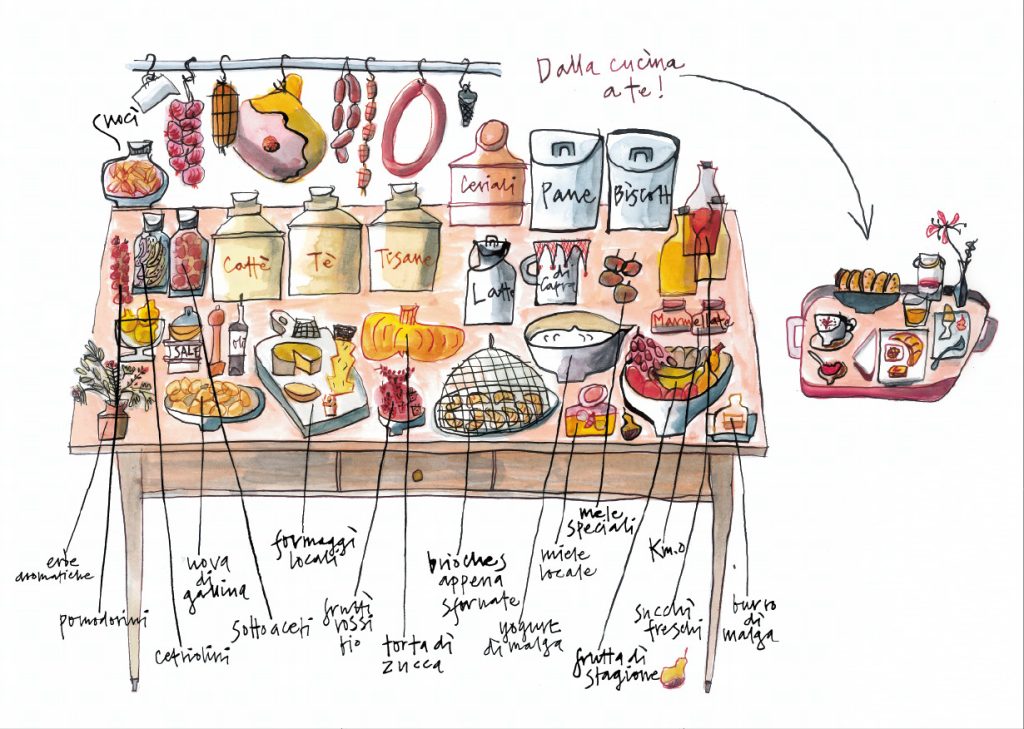 Dalla cucina
a te!
gnocì
Ceriali
Pane
Biscotti
Caffè
Tè
Tisane
Latte
di
Capra
Marmellate
SALE
oli
erbe
aromatiche
pomodorini
cetriolini
nova
di
gallina
sottoaceti
formaggi
locali
frutti
rossi
bio
torta di
zucca
brioches
appena
sfornate
yogurt
di malga
miele
locale
mele
speciali
frutta di
stagione
Km.0
succhi
freschi
burro
di
malga